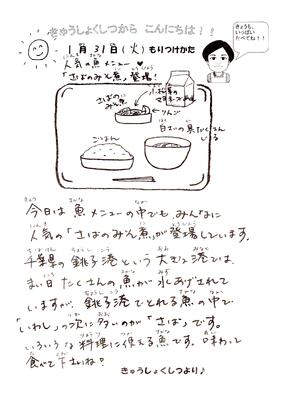 きゅうしょくしつから こんにちは!!
きょうも、
いっぱい
たべてね!!
1月31日(火) もりつけかた
人気の魚メニュー♥
「さばのみそ煮」登場!
さばの
みそ煮
りんご
ごはん
白玉の具だくさん
じる
今日は魚メニューの中でも、みんなに
人気の「さばのみそ煮」が登場しています。
千葉県の銚子港という大きな港では、
まい日たくさんの魚が水あげされて
いますが、銚子港でとれる魚の中で
「いわし」の次に多いのが「さば」です。
いろいろな料理に使える魚です。味わって
食べて下さいね?
きゅうしょくしつより♪